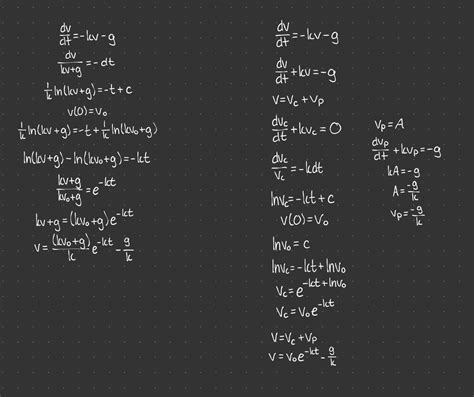 dv/dt = -kv - g
dv/kv+g = -dt
1/k ln(kv+g) = -t + c
v(0) = v₀
1/k ln(kv+g) = -t + 1/k ln(kv₀+g)
ln(kv+g) - ln(kv₀+g) = -kt
kv+g/kv₀+g = e^-kt
kv+g = (kv₀+g)e^-kt
v = (kv₀+g)/k e^-kt - g/k
dv/dt = -kv - g
dv/dt + kv = -g
v = v_c + v_p
dv_c/dt + kv_c = 0
dv_c/v_c = -kdt
lnv_c = -kt + c
v(0) = v₀
lnv₀ = c
lnv_c = -kt + lnv₀
v_c = e^-kt + lnv₀
v_c = v₀e^-kt
v = v_c + v_p
v = v₀e^-kt - g/k
v_p = A
dv_p/dt + kv_p = -g
kA = -g
A = -g/k
v_p = -g/k